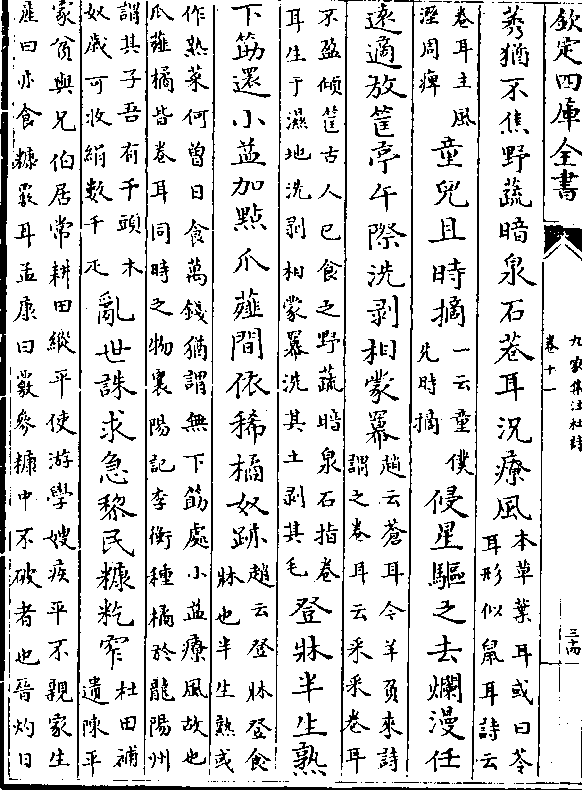 欽定四庫全書
九家集注杜詩
卷十一
三十四
莠猶不焦野蔬暗泉石菤耳況療風
本草葉耳或曰苓
耳形似鼠耳詩云
卷耳主風
溼周痺
童兒且時摘
一云童僕
先時摘
侵星驅之去爛漫任
遠適放筐亭午際洗剥相蒙羃
趙云蒼耳今羊負來詩
謂之卷耳云采采卷耳
不盈傾筐古人已食之野蔬暗泉石指卷
耳生于濕地洗剥相蒙羃洗其土剥其毛
登牀半生熟
下筯還小益加點瓜薤間依稀橘奴跡
趙云登牀登食
牀也半生熟或
作熟菜何曾日食萬錢猶謂無下筯處小益療風故也
瓜薤橘皆卷耳同時之物襄陽記李衡種橘於龍陽州
謂其子吾有千頭木
奴歲可收絹數千疋
亂世誅求急黎民糠籺窄
杜田補
遺陳平
家貧與兄伯居常耕田縱平使游學嫂疾平不親家生
産曰亦食糠覈耳孟康曰覈麥糠中不破者也晉灼曰